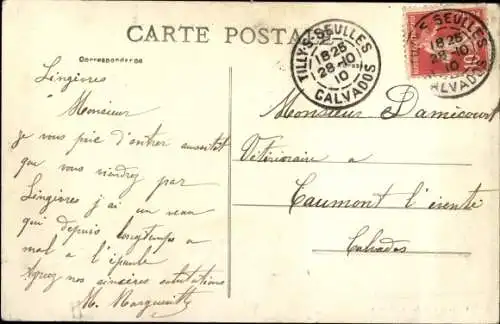 CARTE POSTALE
Correspondance
TILLY-S-SEULLES
18 25
28-10
10
CALVADOS
SEULLES
18 25
28-10
10
CALVADOS
10
Lingèvres
Monsieur
Je vous prie d'entrer aussitot
que vous viendrez par
Lingèvres j'ai un veau
qui depuis longtemps a
mal a l'épaule
nos sincères salutations
M. Marguerite
Monsieur Damicourt
Vétérinaire a
Caumont l'éventé
Calvados